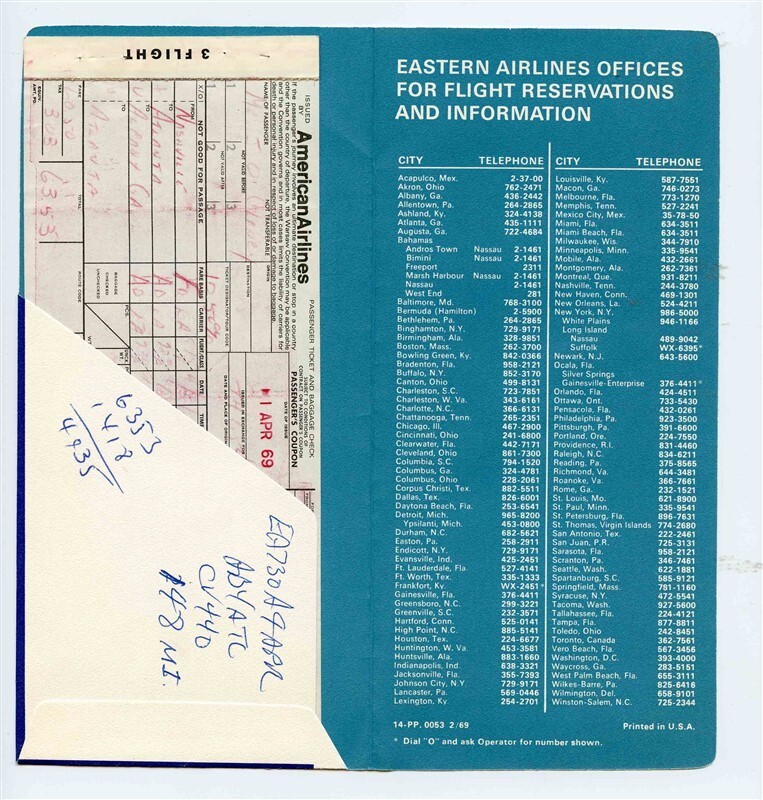 3 FLIGHT
ISSUED BY AmericanAirlines
PASSENGER TICKET AND BAGGAGE CHECK
SUBJECT TO CONDITIONS OF
CONTRACT ON PASSENGER'S COUPON
PASSENGER'S COUPON
If the passenger's journey involves an ultimate destination or stop in a country
other than the country of departure, the Warsaw Convention may be applicable
and the Convention governs and in most cases limits the liability of carriers for
death or personal injury and in respect of loss of or damage to baggage.
NAME OF PASSENGER
NOT TRANSFERABLE
DATE OF ISSUE
1 APR 69
DATE AND PLACE OF ORIGIN
ISSUED IN EXCHANGE FOR
ORIGIN
DESTINATION
TICKET DESIGNATOR/TOUR CODE
NOT VALID BEFORE
NOT VALID AFTER
1 2 3
1 2 3
X/O
NOT GOOD FOR PASSAGE
FARE BASIS
CARRIER
FLIGHT/CLASS
DATE
TIME
FROM
TO
ATLANTA
TO
TO
ATLANTA
BAGGAGE
CHECKED
UNCHECKED
PCS.
WT.
FARE
TAX
TOTAL
6353
EQUIV.
AMT. PD.
ROUTE CODE
6353
1412
4935
EA730A 9APR
ABY ATL
CV440
148 MI
EASTERN AIRLINES OFFICES
FOR FLIGHT RESERVATIONS
AND INFORMATION
CITY TELEPHONE
Acapulco, Mex. 2-37-00
Akron, Ohio 762-2471
Albany, Ga. 436-2442
Allentown, Pa. 264-2865
Ashland, Ky. 324-4138
Atlanta, Ga. 435-1111
Augusta, Ga. 722-4684
Bahamas
Andros Town Nassau 2-1461
Bimini Nassau 2-1461
Freeport 2311
Marsh Harbour Nassau 2-1461
Nassau 2-1461
West End 281
Baltimore, Md. 768-3100
Bermuda (Hamilton) 2-5900
Bethlehem, Pa. 264-2865
Binghamton, N.Y. 729-9171
Birmingham, Ala. 328-9851
Boston, Mass. 262-3700
Bowling Green, Ky. 842-0366
Bradenton, Fla. 958-2121
Buffalo, N.Y. 852-3170
Canton, Ohio 499-8131
Charleston, S.C. 723-7851
Charleston, W. Va. 343-6161
Charlotte, N.C. 366-6131
Chattanooga, Tenn. 265-2351
Chicago, Ill. 467-2900
Cincinnati, Ohio 241-6800
Clearwater, Fla. 442-7171
Cleveland, Ohio 861-7300
Columbia, S.C. 794-1520
Columbus, Ga. 324-4781
Columbus, Ohio 228-2061
Corpus Christi, Tex. 882-5511
Dallas, Tex. 826-6001
Daytona Beach, Fla. 253-6541
Detroit, Mich. 965-8200
Ypsilanti, Mich. 453-0800
Durham, N.C. 682-5621
Easton, Pa. 258-2911
Endicott, N.Y. 729-9171
Evansville, Ind. 425-2451
Ft. Lauderdale, Fla. 527-4141
Ft. Worth, Tex. 335-1333
Frankfort, Ky. WX-2451*
Gainesville, Fla. 376-4411
Greensboro, N.C. 299-3221
Greenville, S.C. 232-3571
Hartford, Conn. 525-0141
High Point, N.C. 885-5141
Houston, Tex. 224-6677
Huntington, W. Va. 453-3581
Huntsville, Ala. 883-1660
Indianapolis, Ind. 638-3321
Jacksonville, Fla. 355-7393
Johnson City, N.Y 729-9171
Lancaster, Pa. 569-0446
Lexington, Ky 254-2701
CITY TELEPHONE
Louisville, Ky. 587-7551
Macon, Ga. 746-0273
Melbourne, Fla. 773-1270
Memphis, Tenn. 527-2241
Mexico City, Mex. 35-78-50
Miami, Fla. 634-3511
Miami Beach, Fla. 634-3511
Milwaukee, Wis. 344-7910
Minneapolis, Minn. 335-9541
Mobile, Ala. 432-2661
Montgomery, Ala. 262-7361
Montreal, Que. 931-8211
Nashville, Tenn. 244-3780
New Haven, Conn. 469-1301
New Orleans, La. 524-4211
New York, N.Y. 986-5000
White Plains 946-1166
Long Island
Nassau 489-9042
Suffolk WX-6395*
Newark, N.J. 643-5600
Ocala, Fla.
Silver Springs
Gainesville-Enterprise 376-4411*
Orlando, Fla. 424-4511
Ottawa, Ont. 733-5430
Pensacola, Fla. 432-0261
Philadelphia, Pa. 923-3500
Pittsburgh, Pa. 391-6600
Portland, Ore. 224-7550
Providence, R.I. 831-4460
Raleigh, N.C. 834-6211
Reading, Pa. 375-8565
Richmond, Va. 644-3481
Roanoke, Va. 366-7661
Rome, Ga. 232-1521
St. Louis, Mo. 621-8900
St. Paul, Minn. 335-9541
St. Petersburg, Fla. 896-7631
St. Thomas, Virgin Islands 774-2680
San Antonio, Tex. 222-2461
San Juan, P.R. 725-3131
Sarasota, Fla. 958-2121
Scranton, Pa. 346-7461
Seattle, Wash. 622-1881
Spartanburg, S.C. 585-9121
Springfield, Mass. 781-1160
Syracuse, N.Y. 472-5541
Tacoma, Wash. 927-5600
Tallahassee, Fla. 224-4121
Tampa, Fla. 877-8811
Toledo, Ohio 242-8451
Toronto, Canada 362-7561
Vero Beach, Fla. 567-3456
Washington, D.C. 393-4000
Waycross, Ga. 283-5151
West Palm Beach, Fla. 655-3111
Wilkes-Barre, Pa. 825-6416
Wilmington, Del. 658-9101
Winston-Salem, N.C. 725-2344
14-PP. 0053 2/69
Printed in U.S.A.
* Dial "O" and ask Operator for number shown.